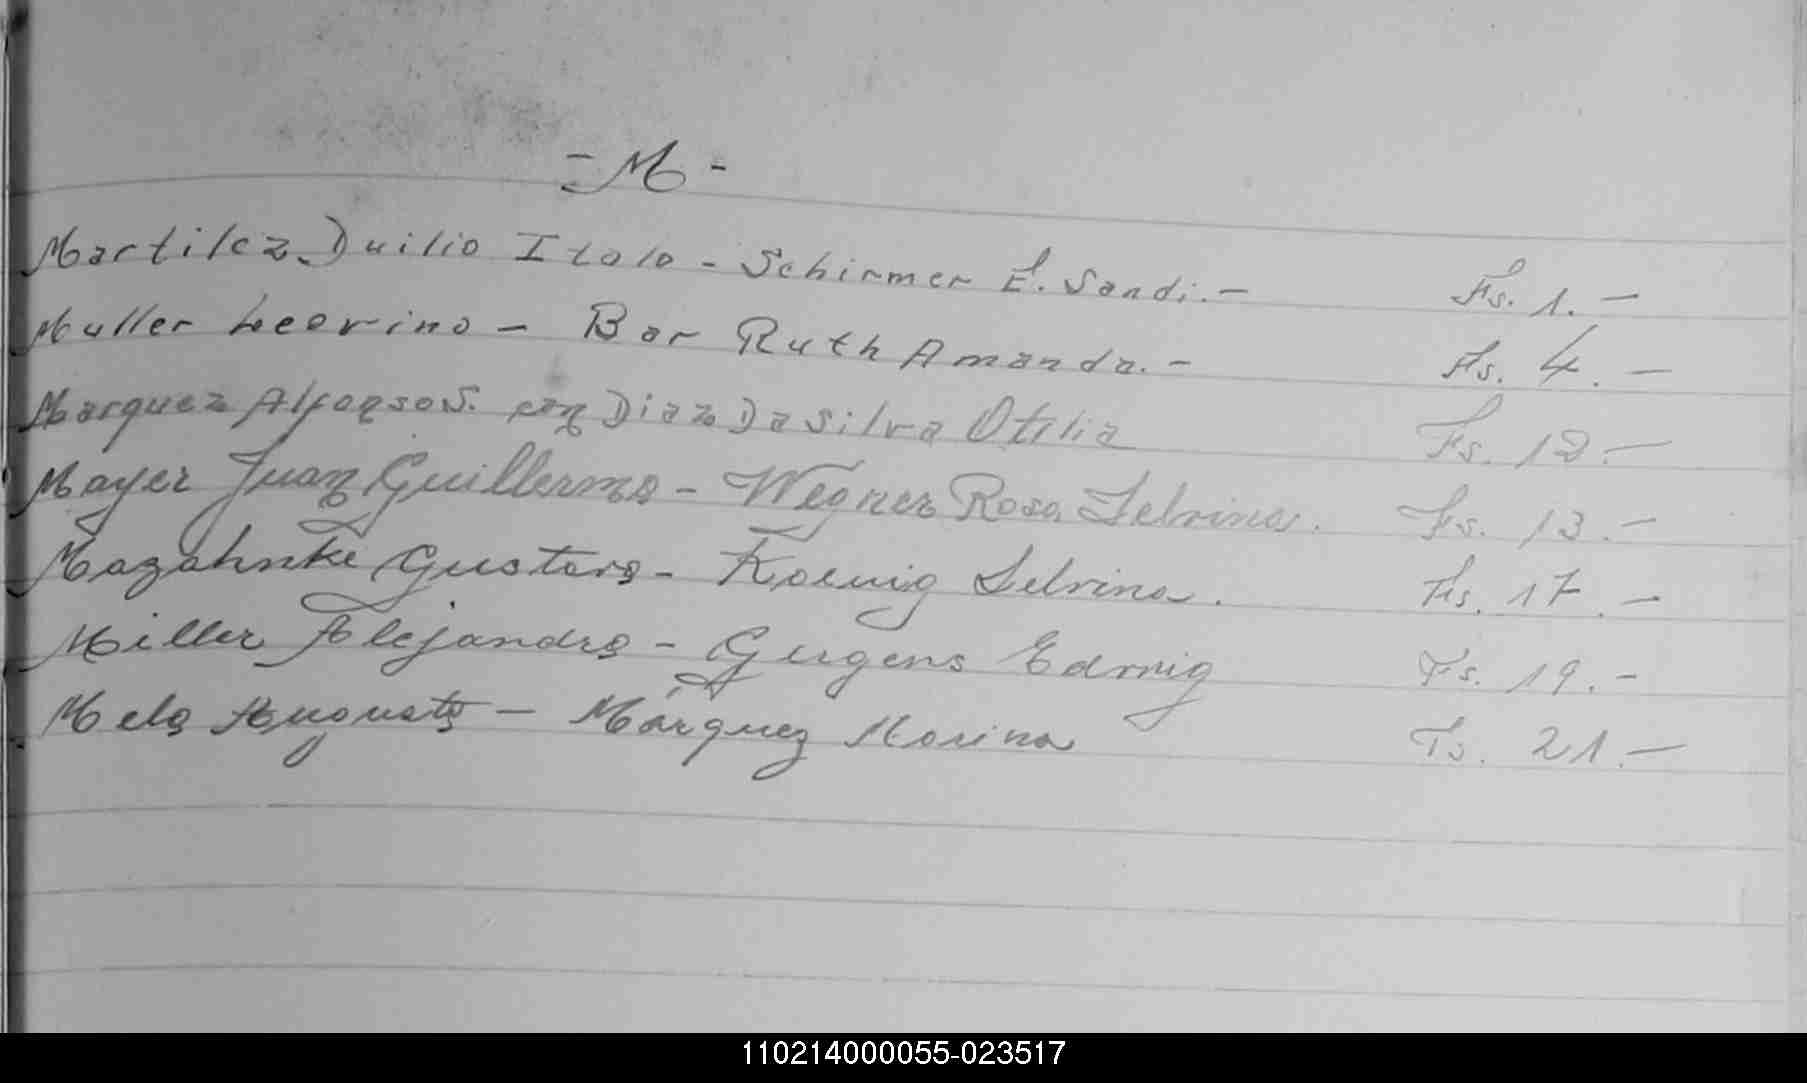 - M -
Martilez Duilio Italo - Schirmer E. Sandi. - Fs. 1. -
Muller Leovino - Bar Ruth Amanda. - Fs. 4. -
Marquez Alfonso S. con Diaz Da Silva Otilia Fs. 12. -
Mayer Juan Guillermo - Wegner Rosa Selvina. Fs. 13. -
Gustavo - Koenig Selvina. Fs. 17. -
Miller Alejandro - Gergens Edwig Fs. 19. -
Melo Augusto - Márquez Marina Fs. 21. -
110214000055-023517